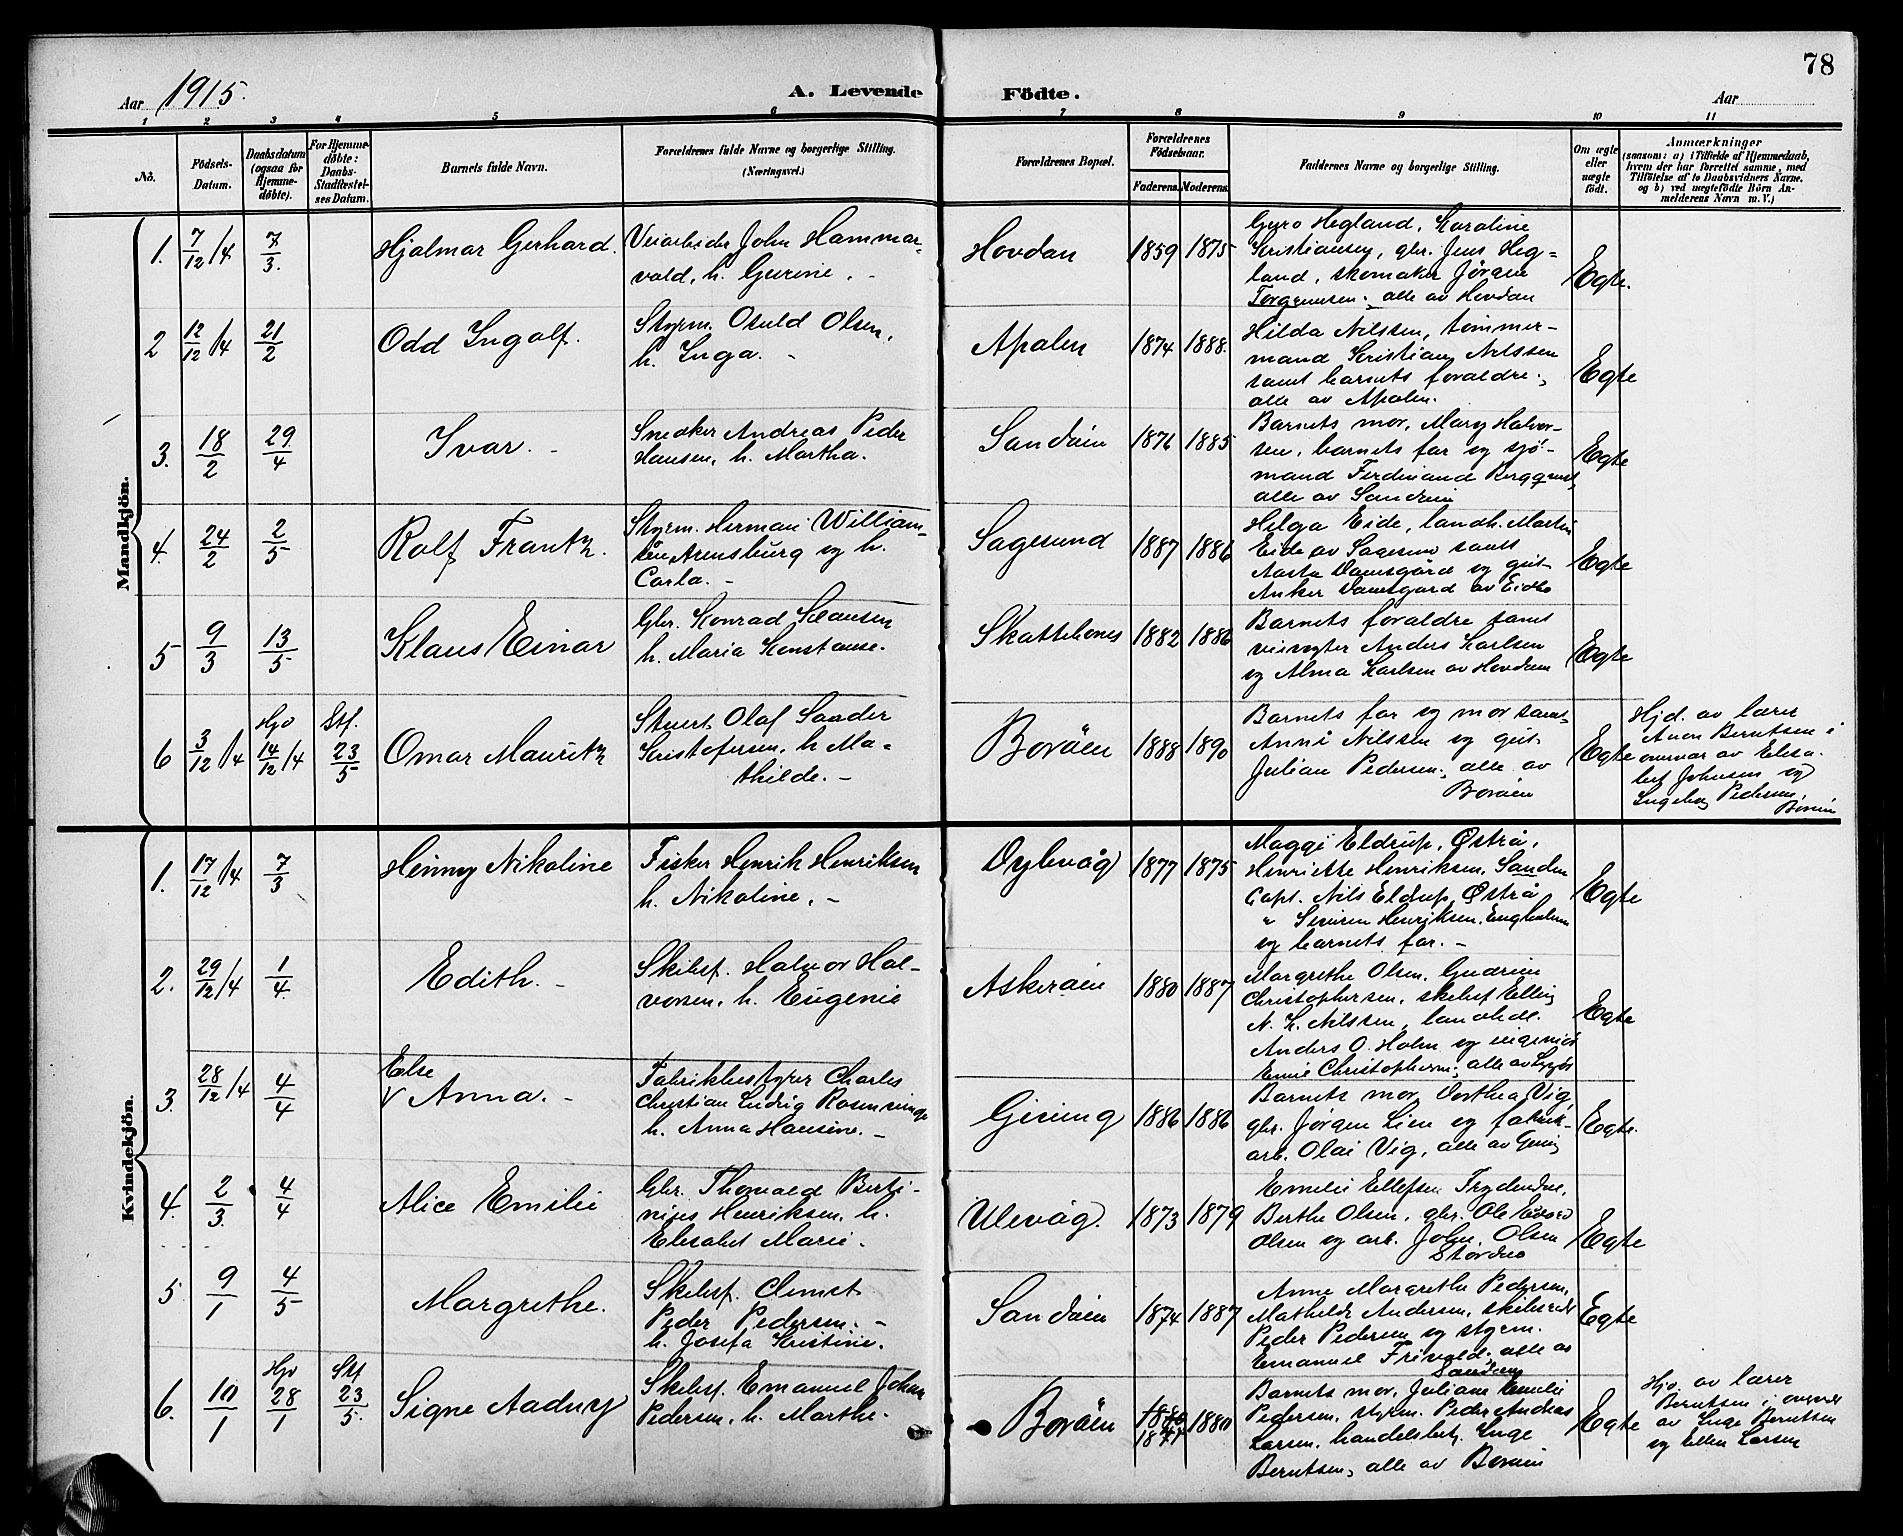 78
Aar 1915. A. Levende Födte. Aar
1 2 3 4 5 6 7 8 9 10 11
No.
Födsels-
Datum.
Daabsdatum
(ogsaa for
Hjemme-
döbte).
For Hjemme-
døbte:
Daabs-
Stadfæstel-
ses Datum.
Barnets fulde Navn.
Forældrenes fulde Navne og borgerlige Stilling.
(Næringsvei.)
Forældrenes Bopæl.
Forældrenes
Födselsaar.
Faderens. Moderens.
Faddernes Navne og borgerlige Stilling.
Om ægte
eller
uægte
födt.
Anmærkninger
(saasom: a) i Tilfælde af Hjemmedaab,
hvem der har forrettet samme, med
Tilföielse af to Daabsvidners Navne.
og b) ved uægtefödte Börn An-
melderens Navn m. V.)
Mandkjön.
1. 7/12 14 7/3.
Hjalmar Gerhard.
Veiarbeider John Hammar-
vald, h. Gurine. -
Hovdan 1859 1875
Guro Hegland, Karoline
Kristiansen, gbr. Jens Heg-
land, skomaker Jørgen
Torgersen, alle av Hovdan
Egte.
2 12/12 14 21/2
Odd Ingolf.
Styrm. Osuld Olsen,
h. Inga. -
Apalen 1874 1888.
Hilda Nilssen, tømmer-
mand Kristian Nilssen
samt barnets foraldre.,
alle av Apalen.
Egte
3. 18/2 29/4
Ivar. -
Snedker Andreas Peder
Hansen, h. Martha.
Sandøien 1876 1885
Barnets mor, Mary Halvor-
sen, barnets far og sjö-
mand Ferdinand Berggrent,
alle av Sandøien
Egte
4. 24/2 2/5
Rolf Frantz.
Styrm. Herman William-
Arensburg og h.
Carla. -
Sagesund 1887 1886
Helga Eide, landh. Martin
Eide av Sagesund samt
Aasta Damsgård og gut-
Anker Damsgard av Eidbo
Egte
5 9/3 13/5
Klaus Einar
Gbr. Konrad Klausen
h. Maria Konstanse.
Skottebones 1882 1886
Barnets foraldre samt
veivogter Anders Karlsen
og Alma Karlsen av Hovdan
Egte
6 3/12 14 Hjd 14/12 14 Stf. 23/5
Omar Mauritz
Stuert Olaf Sander
Kristofersen, h. Ma-
thilde. -
Borøen 1888 1890
Barnets far og mor samt
Anna Nilssen og gut-
Julian Pedersen, alle av
Borøen
Egte
Hjd. av lærer
Aven Berntsen i
overvær av Elisa-
bet Johnsen og
Ingeborg Pedersen,
Borøen
Kvindekjön.
1. 17/12 14 7/3
Henny Nikoline
Fisker Henrik Henriksen
h. Nikoline. -
Dybvåg 1877 1875
Maggi Eldrup, Østrå,
Henriette Henriksen, Sanden
Capt. Nils Eldrup, Østrå
" Severin Henriksen, Engholmen
og barnets far. -
Egte
2. 29/12 14 1/4.
Edith. -
Skibsf. Halvor Hal-
vorsen, h. Eugenie
Askerøien 1880 1887
Margrethe Olsen, Gudrun
Christophersen, skibsf Elling
N. K. Nilssen, landhdl.
Anders O. Holm og ingeniør
Emil Christophersen, alle av Lyngør
Egte
3. 28/12 14 4/4
Else
V Anna. -
Fabrikbestyrer Charles
Christian Ludvig Rosenvinge
h. Anna Hansine. -
Gjeving 1886 1886
Barnets mor, Dorthea Vig,
gbr. Jørgen Lien og fabrik-
arb. Olai Vig, alle av Gjeving
Egte.
4. 2/3. 4/4
Alice Emilie
Gbr. Thorvald Berti-
nius Henriksen, h.
Elisabet Marie.
Ulevåg. 1873 1879
Emelie Ellefsen Frydendal,
Berthe Olsen, gbr. Ole Edvard
Olsen og arb. John Olsen
Egte
5 9/1 4/5
Margrethe.
Skibsf. Clemet
Peder Pedersen. -
h. Josefa Kristine.
Sandøien 1874 1887
Anne Margrethe Pedersen,
Mathilde Andersen, skibsred.
Peder Pedersen og styrm.
Emanuel Frivold, alle av
Sandøen
Egte
6. 10/1 Hjd 28/1 Stf 23/5.
Signe Aadny
Skibsf. Emanuel Johan
Pedersen, h. Marthe.
Borøen 1880 1877 1880
Barnets mor, Juliane Emelie
Pedersen, styrm. Peder Andreas
Larsen, handelsbetj. Inge
Berntsen, alle av Borøen
Egte
Hjd. av lærer
Berntsen i overvær
av Inge Berntsen
og Ellen Larsen